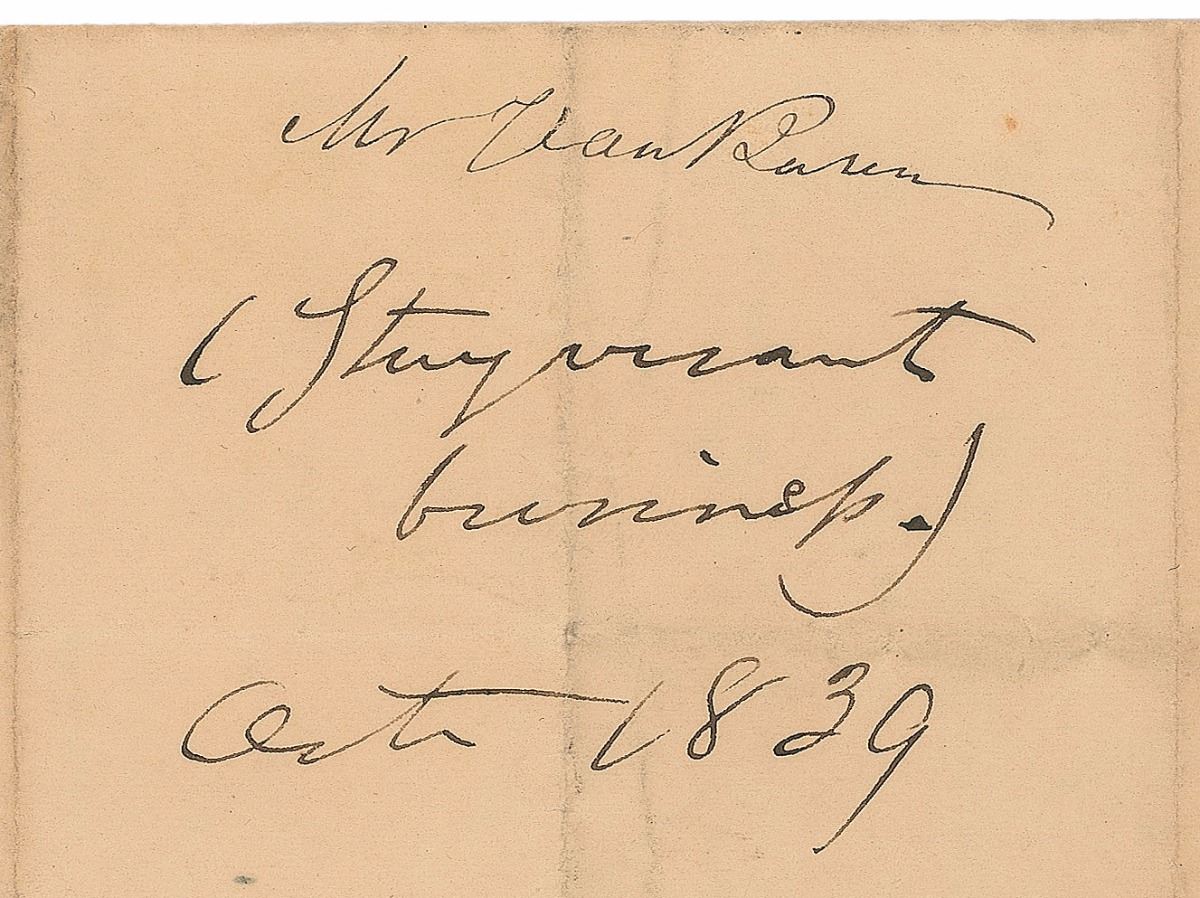 Mr Van Buren
(Stuyvesant
business.)
Octr 1839